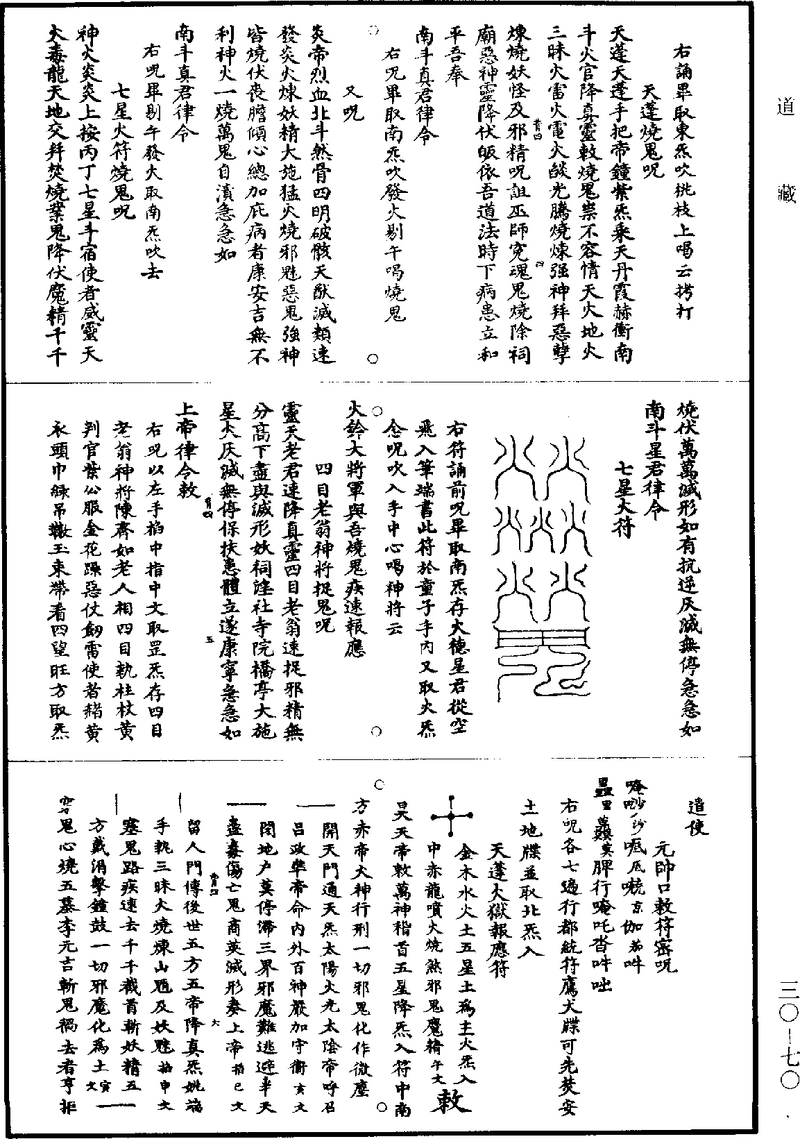 道藏
右誦畢取東炁吹桃枝上喝云拷打
天蓬燒鬼呪
天蓬天蓬手把帝鐘紫炁乘天丹霞赫衝南
斗火官降真靈敕燒鬼祟不容情天火地火
三昧火雷火電火燄光騰燒煉強神并惡孽
煉燒妖怪及邪精呪詛巫師冤魂鬼燒除祠
廟惡神靈降伏皈依吾道法時下病患立和
平吾奉
南斗真君律令
右呪畢取南炁吹發火剔午喝燒鬼
又呪
炎帝烈血北斗然骨四明破骸天猷滅類速
發炎火煉妖精大施猛火燒邪魅惡鬼強神
皆燒伏喪膽傾心總加庇病者康安吉無不
利神火一燒萬鬼自潰急急如
南斗真君律令
右呪畢剔午發火取南炁吹去
七星火符燒鬼呪
神火炎炎上按丙丁七星斗宿使者威靈天
火毒龍天地交并焚燒業鬼降伏魔精千千
燒伏萬萬滅形如有抗逆灰滅無停急急如
南斗星君律令
七星火符
右符誦前呪畢取南炁存火德星君從空
飛入筆端書此符於童子手內又取火炁
念呪吹入手中心喝神將云
火鈴大將軍與吾燒鬼疾速報應
四目老翁神將捉鬼呪
靈天老君速降真靈四目老翁速捉邪精無
分高下盡與滅形妖祠淫社寺院橋亭大施
星火灰滅無停保扶患體立遂康寧急急如
上帝律令敕
右呪以左手掐中指中文取罡炁存四目
老翁神將陳齊如老人相四目執柱杖黃
判官葉公服金花躁惡仗劒雷使者豬黃
衣頭巾綠吊𩌏玉束帶看四望旺方取炁
遣使
元帥口敕符密呪
右呪各七遍行都統符鷹犬牒可先焚安
土地牒並取北炁入
天蓬大獄報應符
金木水火土五星土為主火炁入
中赤龍噴火燒煞邪鬼魔精午文 敕
昊天帝敕萬神稽首五星降炁入符中南
方赤帝大神行刑一切邪鬼化作微塵
開天門通天炁太陽火光太陰帝呼召
呂政華帝命內外百神嚴加守衛亥文
閉地戶莫停滯三界邪魔難逃避半天
盡毒傷亡鬼商英滅形奏上帝掐巳文
留人門傳後世五方五帝降真炁姚端
手執三昧火燒煉山魈及妖魅掐申文
塞鬼路疾速去千千截首斬妖精五
方戴涓擊鐘鼓一切邪魔化為土寅文
穿鬼心燒五墓李元吉斬鬼禍去者亨拒
三〇—七〇